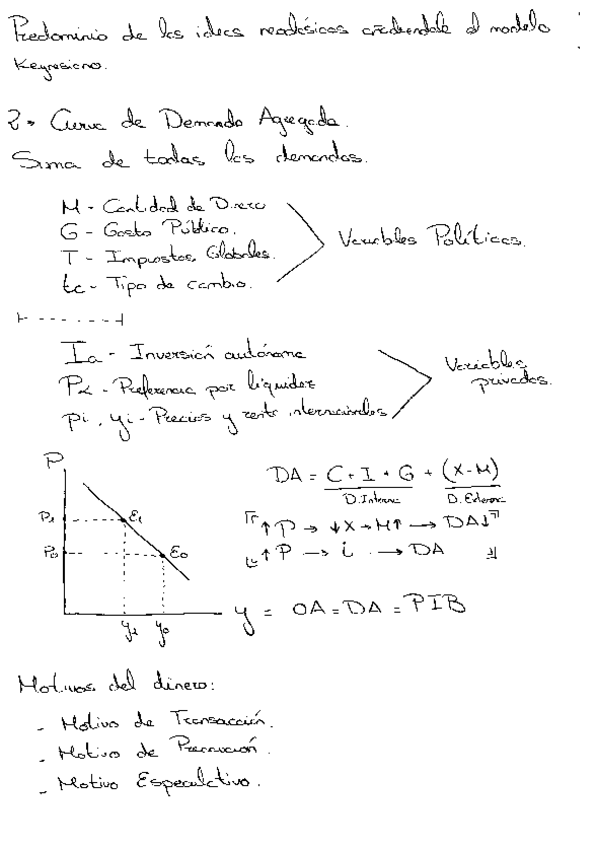 Predominio de las ideas neoclásicas al modelo
Keynesiano.
2. Curva de Demanda Agregada.
Suma de todas las demandas.
M - Cantidad de Dinero
G - Gasto Público.
T - Impuestos Globales.
tc - Tipo de cambio.
Variables Políticas.
Ia - Inversión autónoma
- Preferencia por liquidez
pi, yi - Precios y renta internacionales
Variables
privadas.
P
P1
P0
E1
E0
y1 y0
DA = C + I + G + (X - M)
D. Interna D. Exterior
↑P → ↓X → M↑ → DA↓
↑P → i → DA
y = OA = DA = PIB
Motivos del dinero:
- Motivo de Transacción.
- Motivo de Precaución.
- Motivo Especulativo.